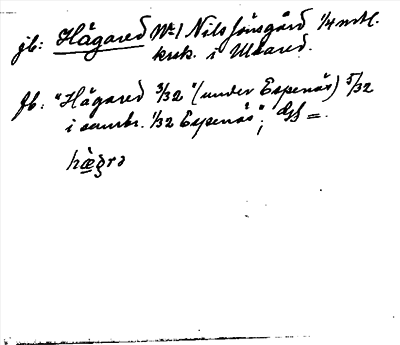 jb: Hägared No 1 Nils Jönsgård 1/4 mtl.
krsk. i Ullared.
fb: "Hägared 3/32 "(under Espenäs) 5/32
i sambr. 1/32 Espenäs";
hæ̀grə